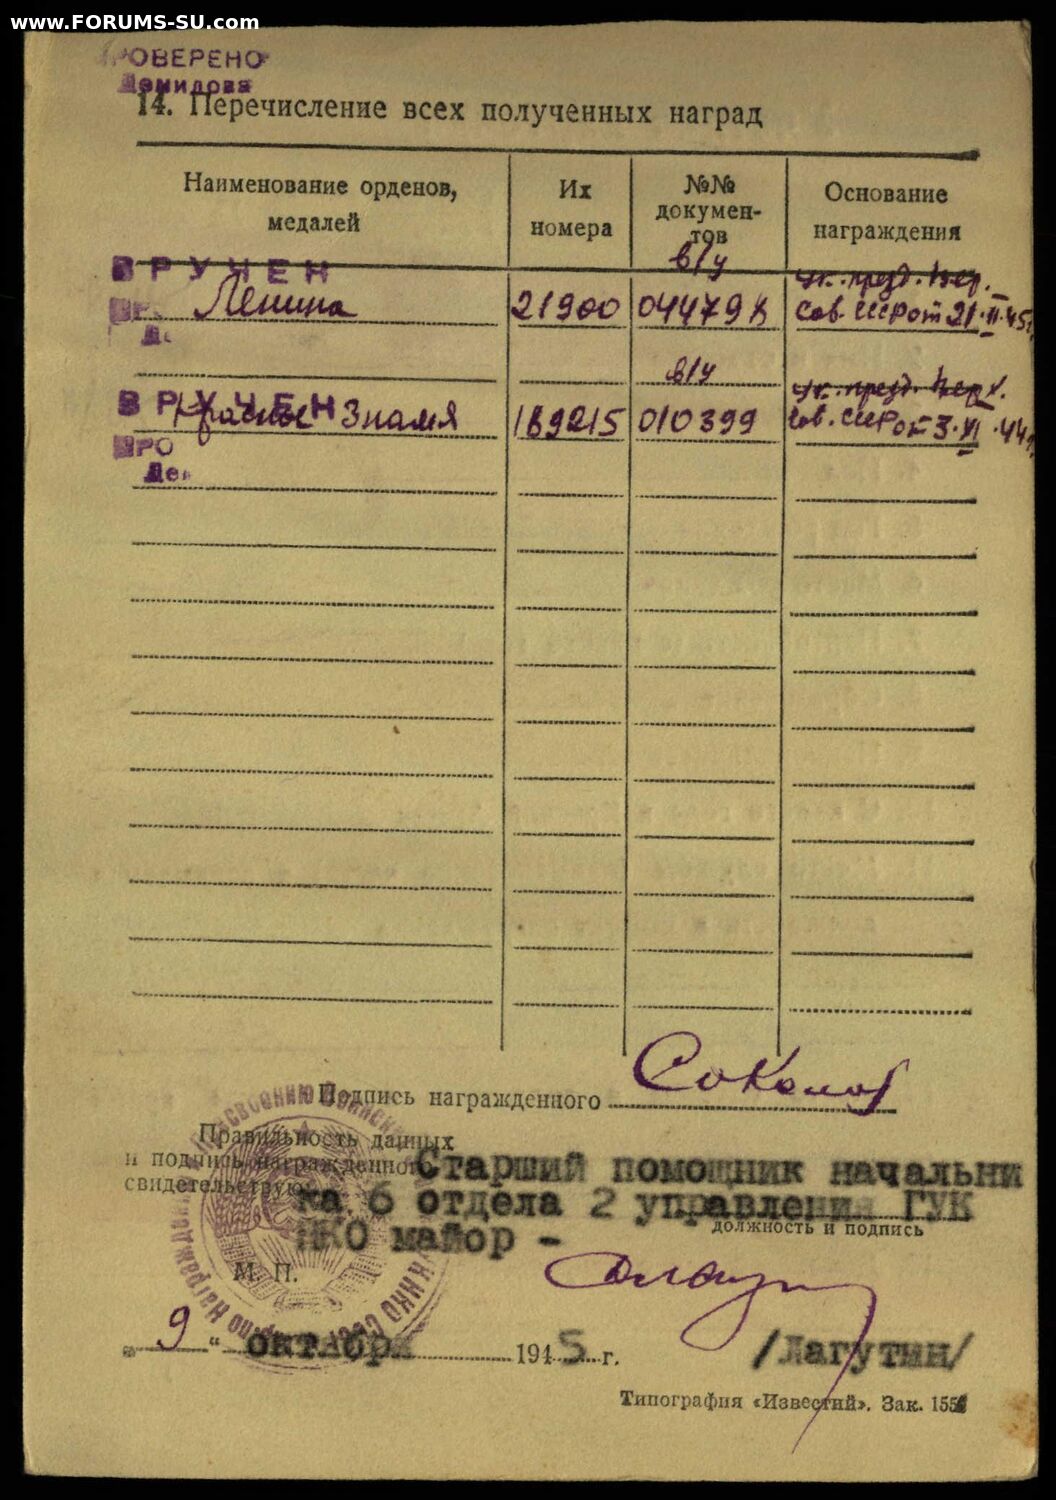 www.FORUMS-SU.com
ПРОВЕРЕНО
Демидова
14. Перечисление всех полученных наград
Наименование орденов, медалей
Их номера
№№ докумен-тов
Основание награждения
ВРУЧЕН
Ленина
21900
в/у
04479 К
ук. през. Вер.
Сов. СССР от 21.II.45г.
ВРУЧЕН
Красное Знамя
189215
в/у
010399
ук. през. Верх.
Сов. СССР от 3.XI.44г.
ПРО
Подпись награжденного Соколов
Правильность данных
и подпись награжденного
свидетельствую
Старший помощник начальни
ка 6 отдела 2 управления ГУК
должность и подпись
НКО майор -
М. П.
"9" октября 1945 г.
/Лагутин/
Типография «Известий». Зак. 155